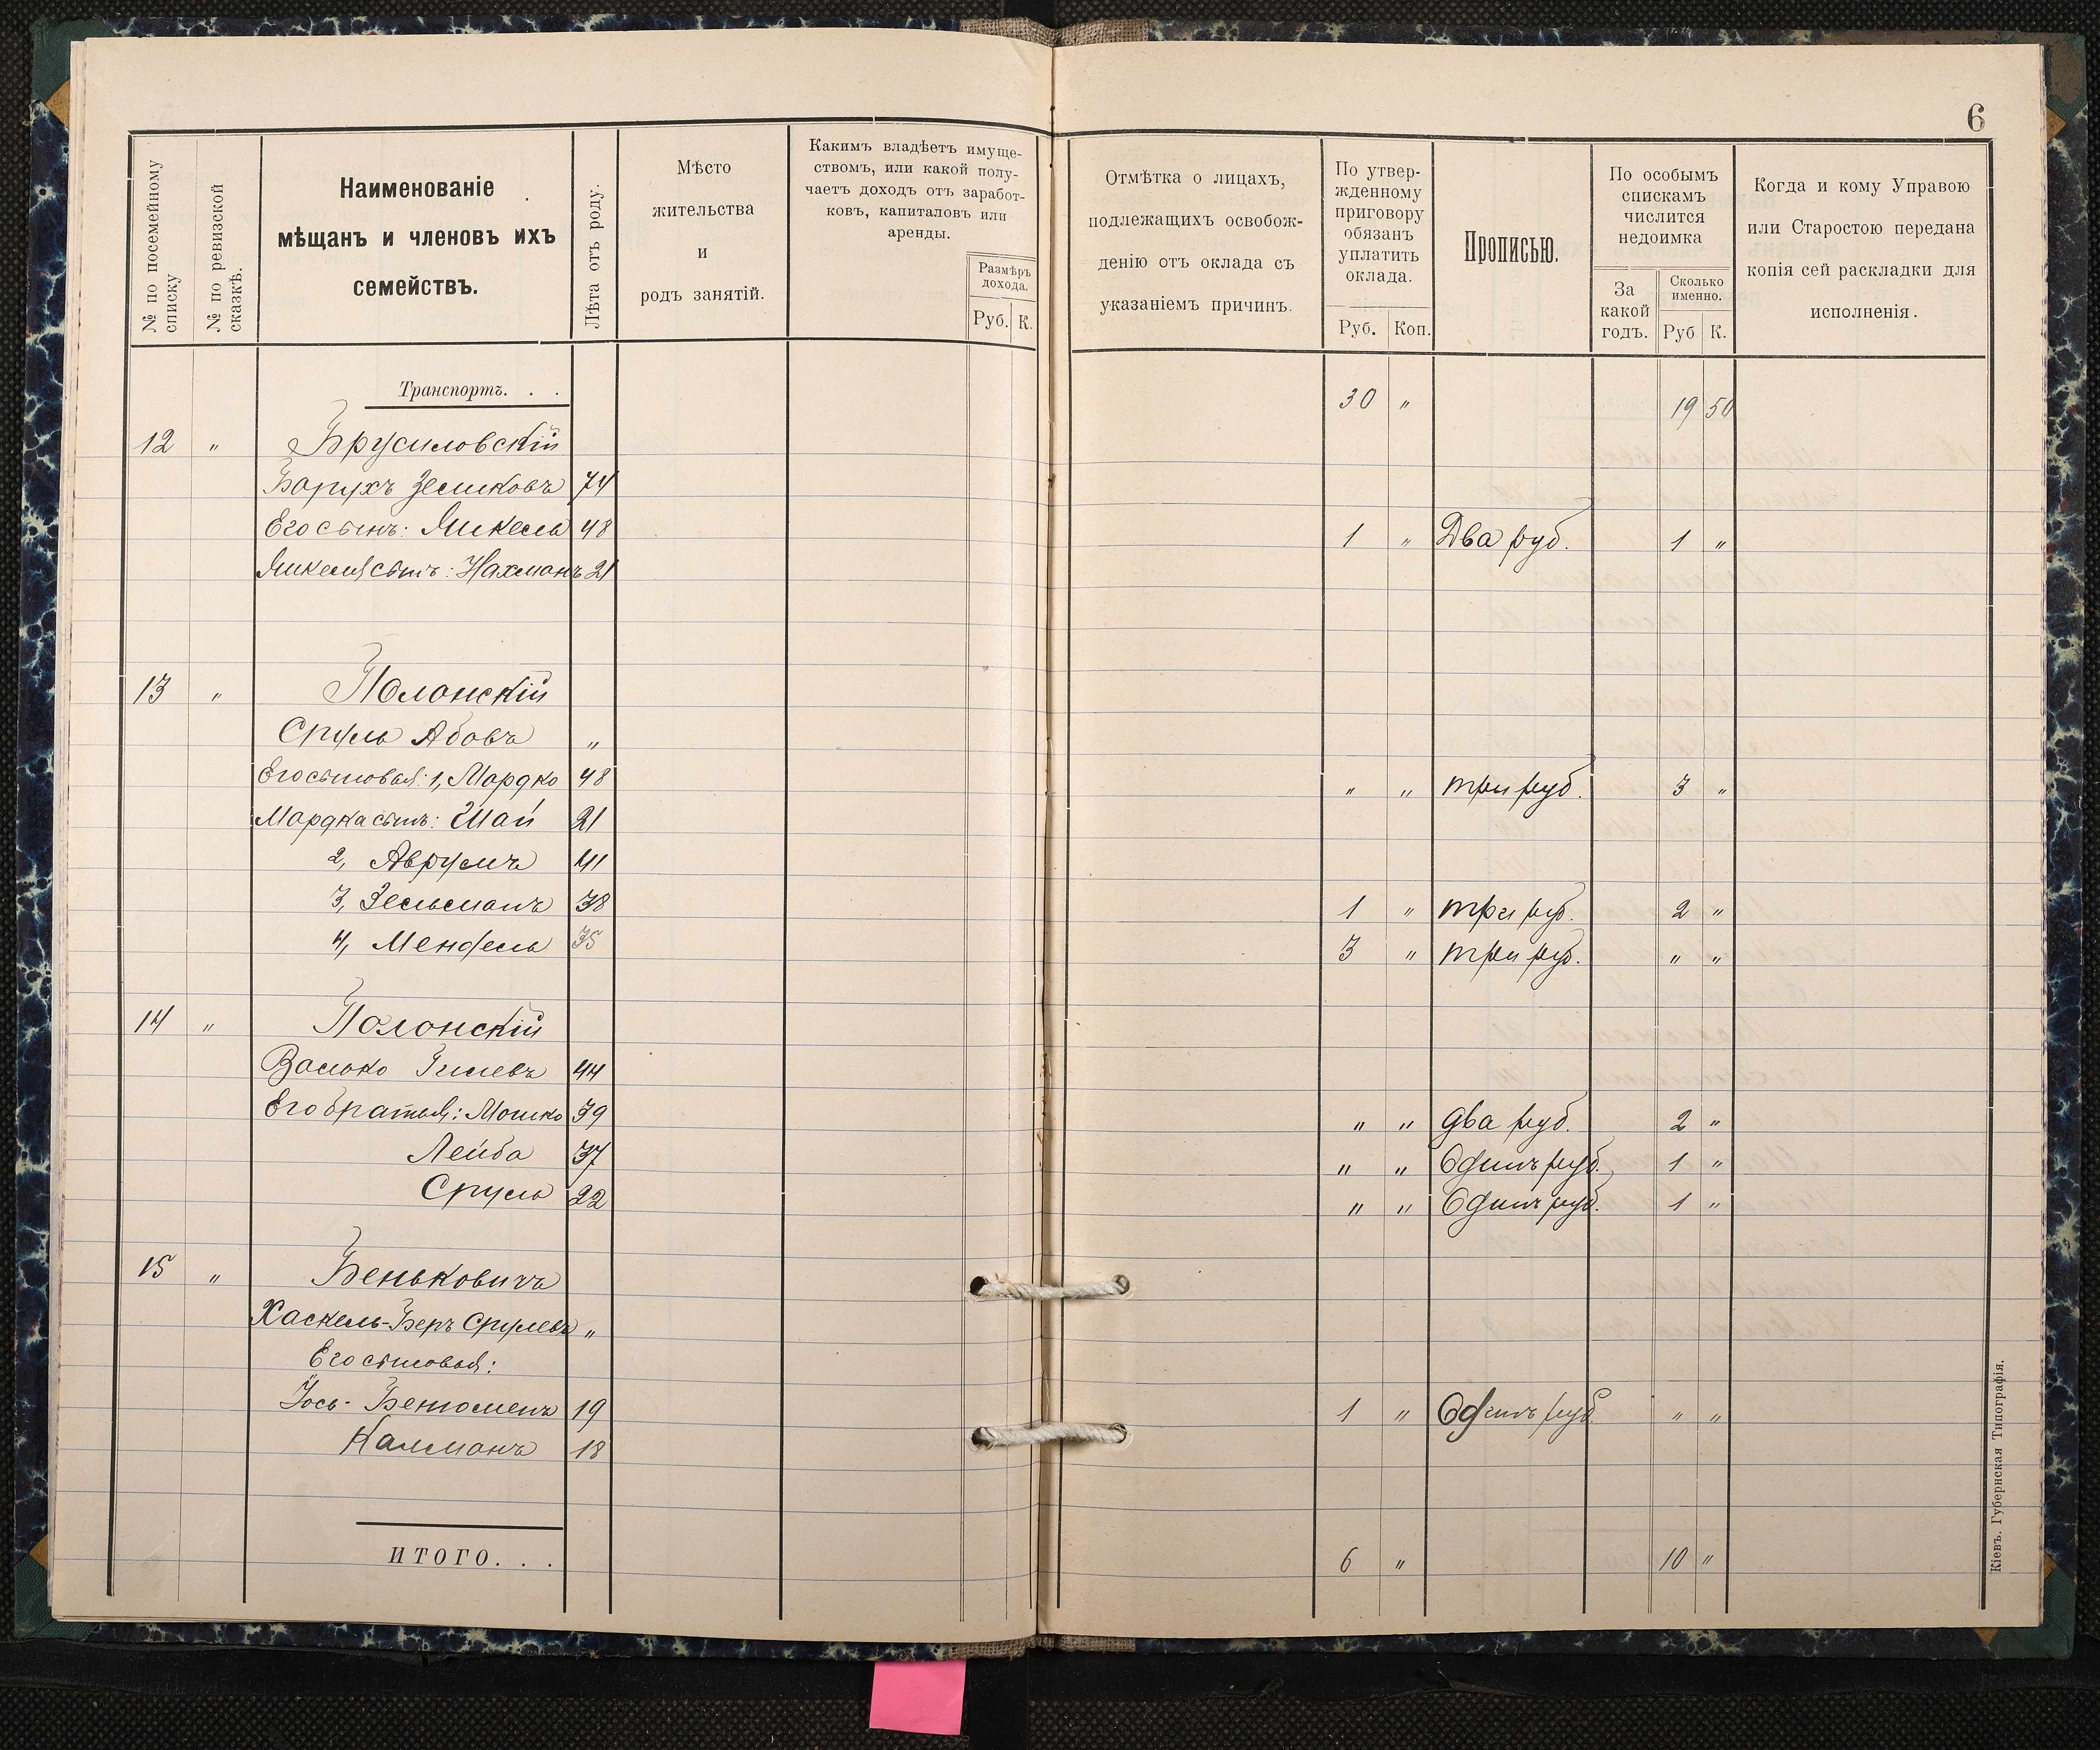 6
№ по посемейному списку
№ по ревизской сказкѣ.
Наименованіе
мѣщанъ и членовъ ихъ
семействъ.
Лѣта отъ роду.
Мѣсто
жительства
и
родъ занятій.
Каким­ъ владѣетъ имуще-
ствомъ, или какой полу-
чаетъ доходъ отъ заработ-
ковъ, капиталовъ или
аренды.
Размѣръ
дохода.
Руб. К.
Отмѣтка о лицахъ,
подлежащихъ освобож-
денію отъ оклада съ
указаніемъ причинъ.
По утвер-
жденному
приговору
обязанъ
уплатить
оклада.
Руб. Коп.
Прописью.
По особымъ
спискамъ
числится
недоимка
За
какой
годъ.
Сколько
именно.
Руб К.
Когда и кому Управою
или Старостою передана
копія сей раскладки для
исполненія.
Транспортъ. . . 30 " 19 50
12 " Брусиловскій
Барухъ Зеликовъ 74
Его сынъ: Микель 48 1 " Два руб. 1 "
Микеля сынъ: Нахманъ 21
13 " Полонскій
Сруль Абовъ "
Его сыновья: 1, Мордко 48 " " три руб. 3 "
Мордка сынъ: Шай 21
2, Аврумъ 41
3, Зельманъ 38 1 " три руб. 2 "
4, Мендель 35 3 " три руб. " "
14 " Полонскій
Волько Гилевъ 44
Его братья: Мошко 39 " " два руб. 2 "
Лейба 37 " " Одинъ руб. 1 "
Сруль 22 " " Одинъ руб. 1 "
15 " Беньковичъ
Хаскель-Беръ Срулевъ "
Его сыновья:
Іось-Беніоменъ 19 1 " Одинъ руб " "
Калманъ 18
ИТОГО. . . 6 " 10 "
Кіевъ. Губернская Типографія.